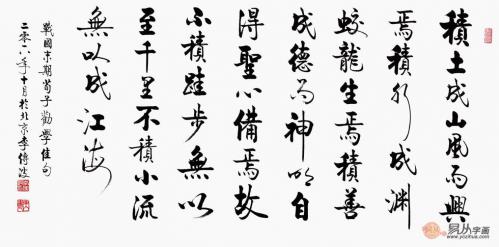 積土成山風雨興
焉積水成淵
蛟龍生焉積善
成德而神明自
得聖心備焉故
不積跬步無以
至千里不積小流
無以成江海
戰國末期荀子勸學佳句
二零一八年十月於北京李傳波
易从字画
www.yizizihua.com